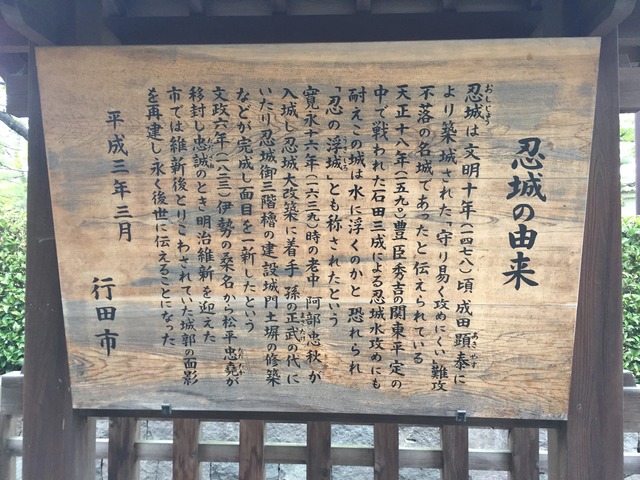 忍城の由来
おしじょう
忍城は文明十年（一四七八）頃 成田顕泰に
あきやす
より築城された「守り易く攻めにくい」難攻
不落の名城であったと伝えられている
天正十八年（一五九〇）豊臣秀吉の関東平定の
中で戦われた石田三成による忍城水攻めにも
耐えこの城は水に浮くのかと恐れられ
「忍の浮城」とも称されたという
寛永十六年（一六三九）時の老中 阿部忠秋が
入城し忍城大改築に着手 孫の正武の代に
いたり忍城御三階櫓の建設城門土塀の修築
などが完成し面目を一新したという
文政六年（一八二三）伊勢の桑名から松平忠堯が
移封し忠誠のとき明治維新を迎えた
市では維新後とりこわされていた城郭の面影
を再建し永く後世に伝えることになった
平成三年三月
行田市